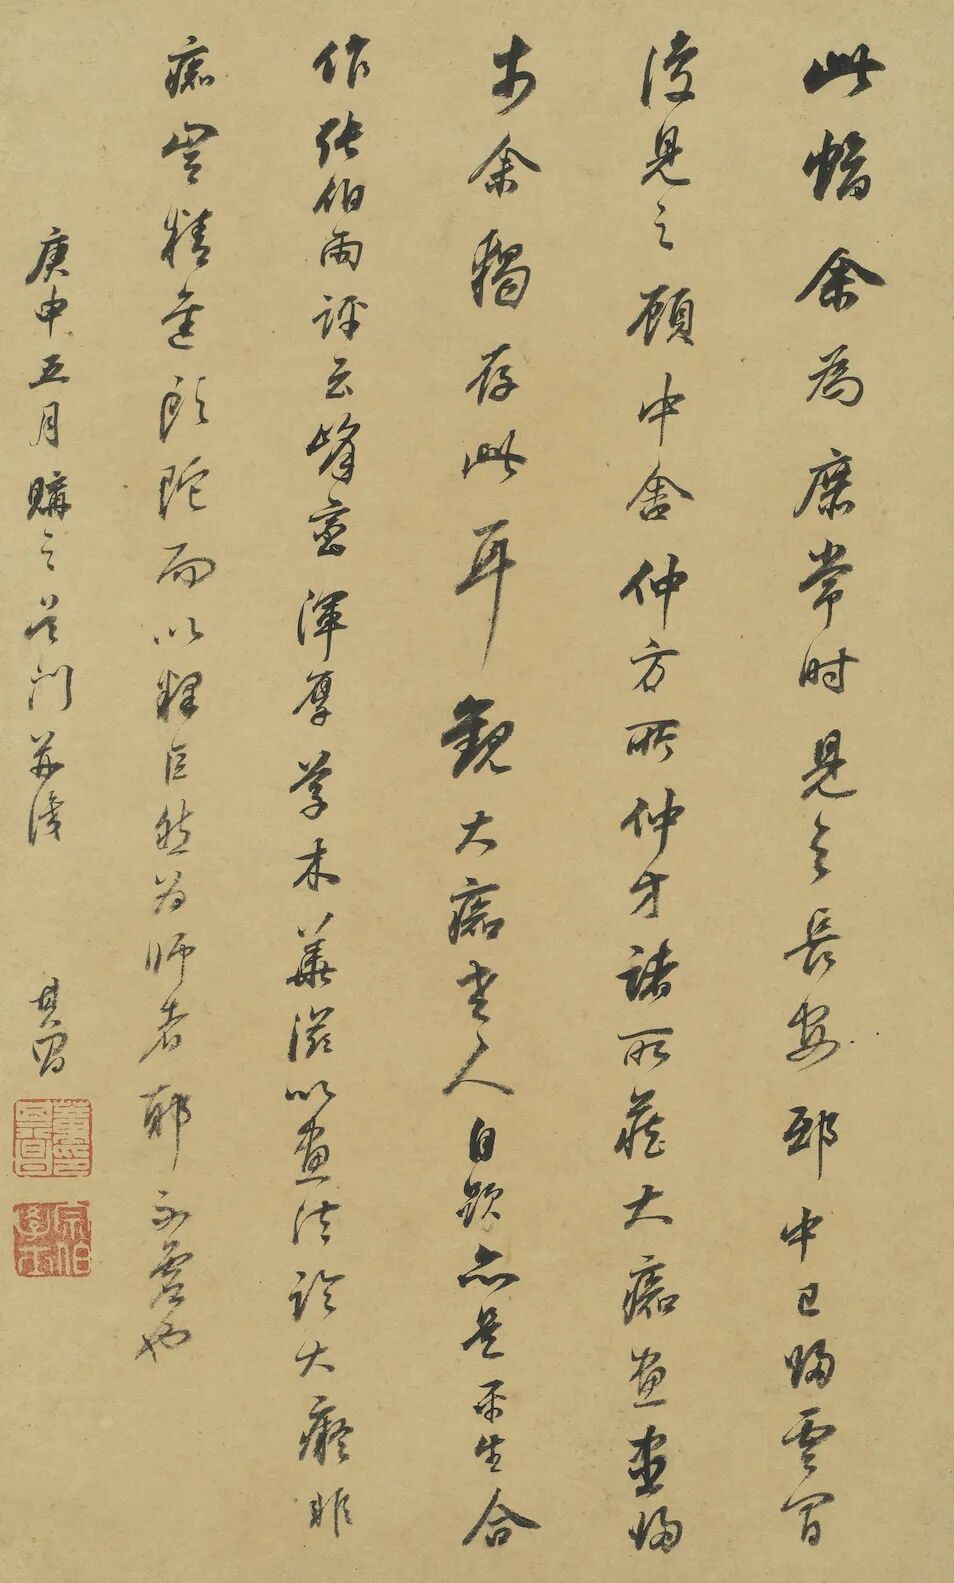 此幅余為庶常時見之長安邸中已歸雲間
復見之顧中舍仲方所仲方諸所藏大痴畫盡歸
於余獨存此耳觀大痴老人自題亦是平生合
作張伯雨評云峰巒渾厚草木華滋以畫法論大癡非
痴豈精進頭陀而以釋巨然為師者耶不虛也
庚申五月購之吳門并識 其昌
董其昌印
宗伯學士